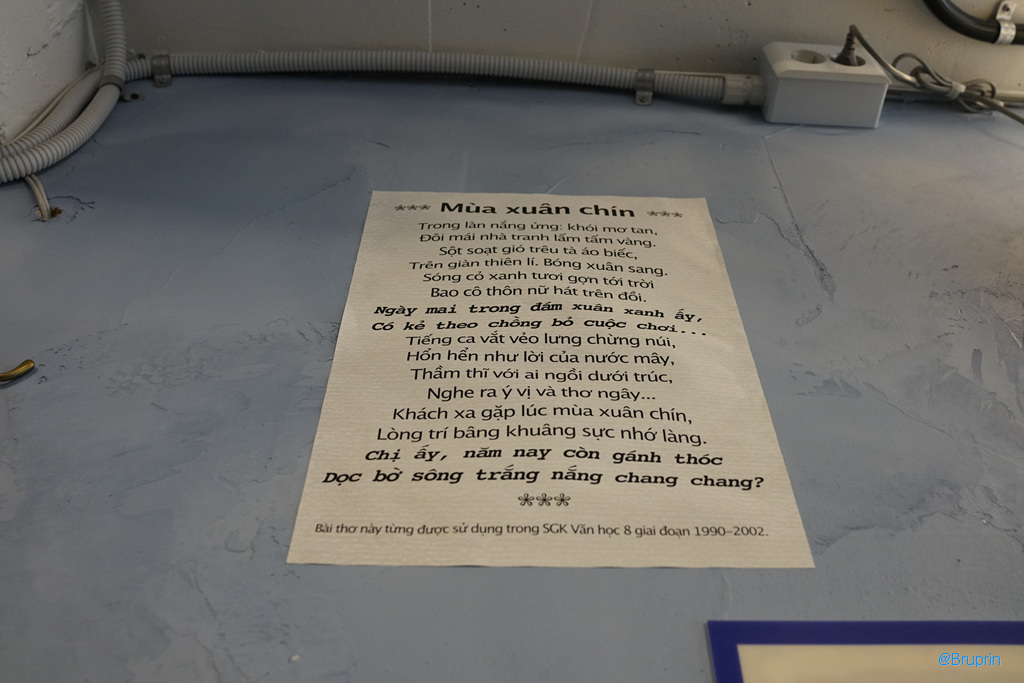 *** Mùa xuân chín ***
Trong làn nắng ửng: khói mơ tan,
Đôi mái nhà tranh lấm tấm vàng.
Sột soạt gió trêu tà áo biếc,
Trên giàn thiên lí. Bóng xuân sang.
Sóng cỏ xanh tươi gợn tới trời
Bao cô thôn nữ hát trên đồi.
Ngày mai trong đám xuân xanh ấy,
Có kẻ theo chồng bỏ cuộc chơi...
Tiếng ca vắt vẻo lưng chừng núi,
Hổn hển như lời của nước mây,
Thầm thĩ với ai ngồi dưới trúc,
Nghe ra ý vị và thơ ngây...
Khách xa gặp lúc mùa xuân chín,
Lòng trí bâng khuâng sực nhớ làng.
Chị ấy, năm nay còn gánh thóc
Dọc bờ sông trắng nắng chang chang?
***
Bài thơ này từng được sử dụng trong SGK Văn học 8 giai đoạn 1990–2002.
@Bruprin